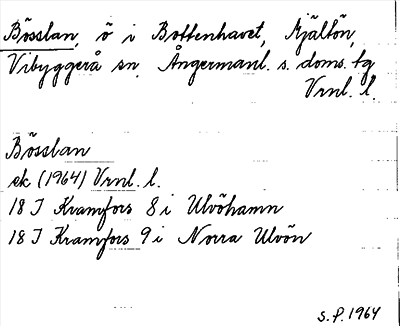 Bösslan, ö i Bottenhavet, Mjältön,
Vibyggerå sn, Ångermanl. s. doms. tg
Vrnl. l.
Bösslan
ek (1964) Vrnl. l.
18 I Kramfors 8 i Ulvöhamn
18 I Kramfors 9 i Norra Ulvön
S.P. 1964